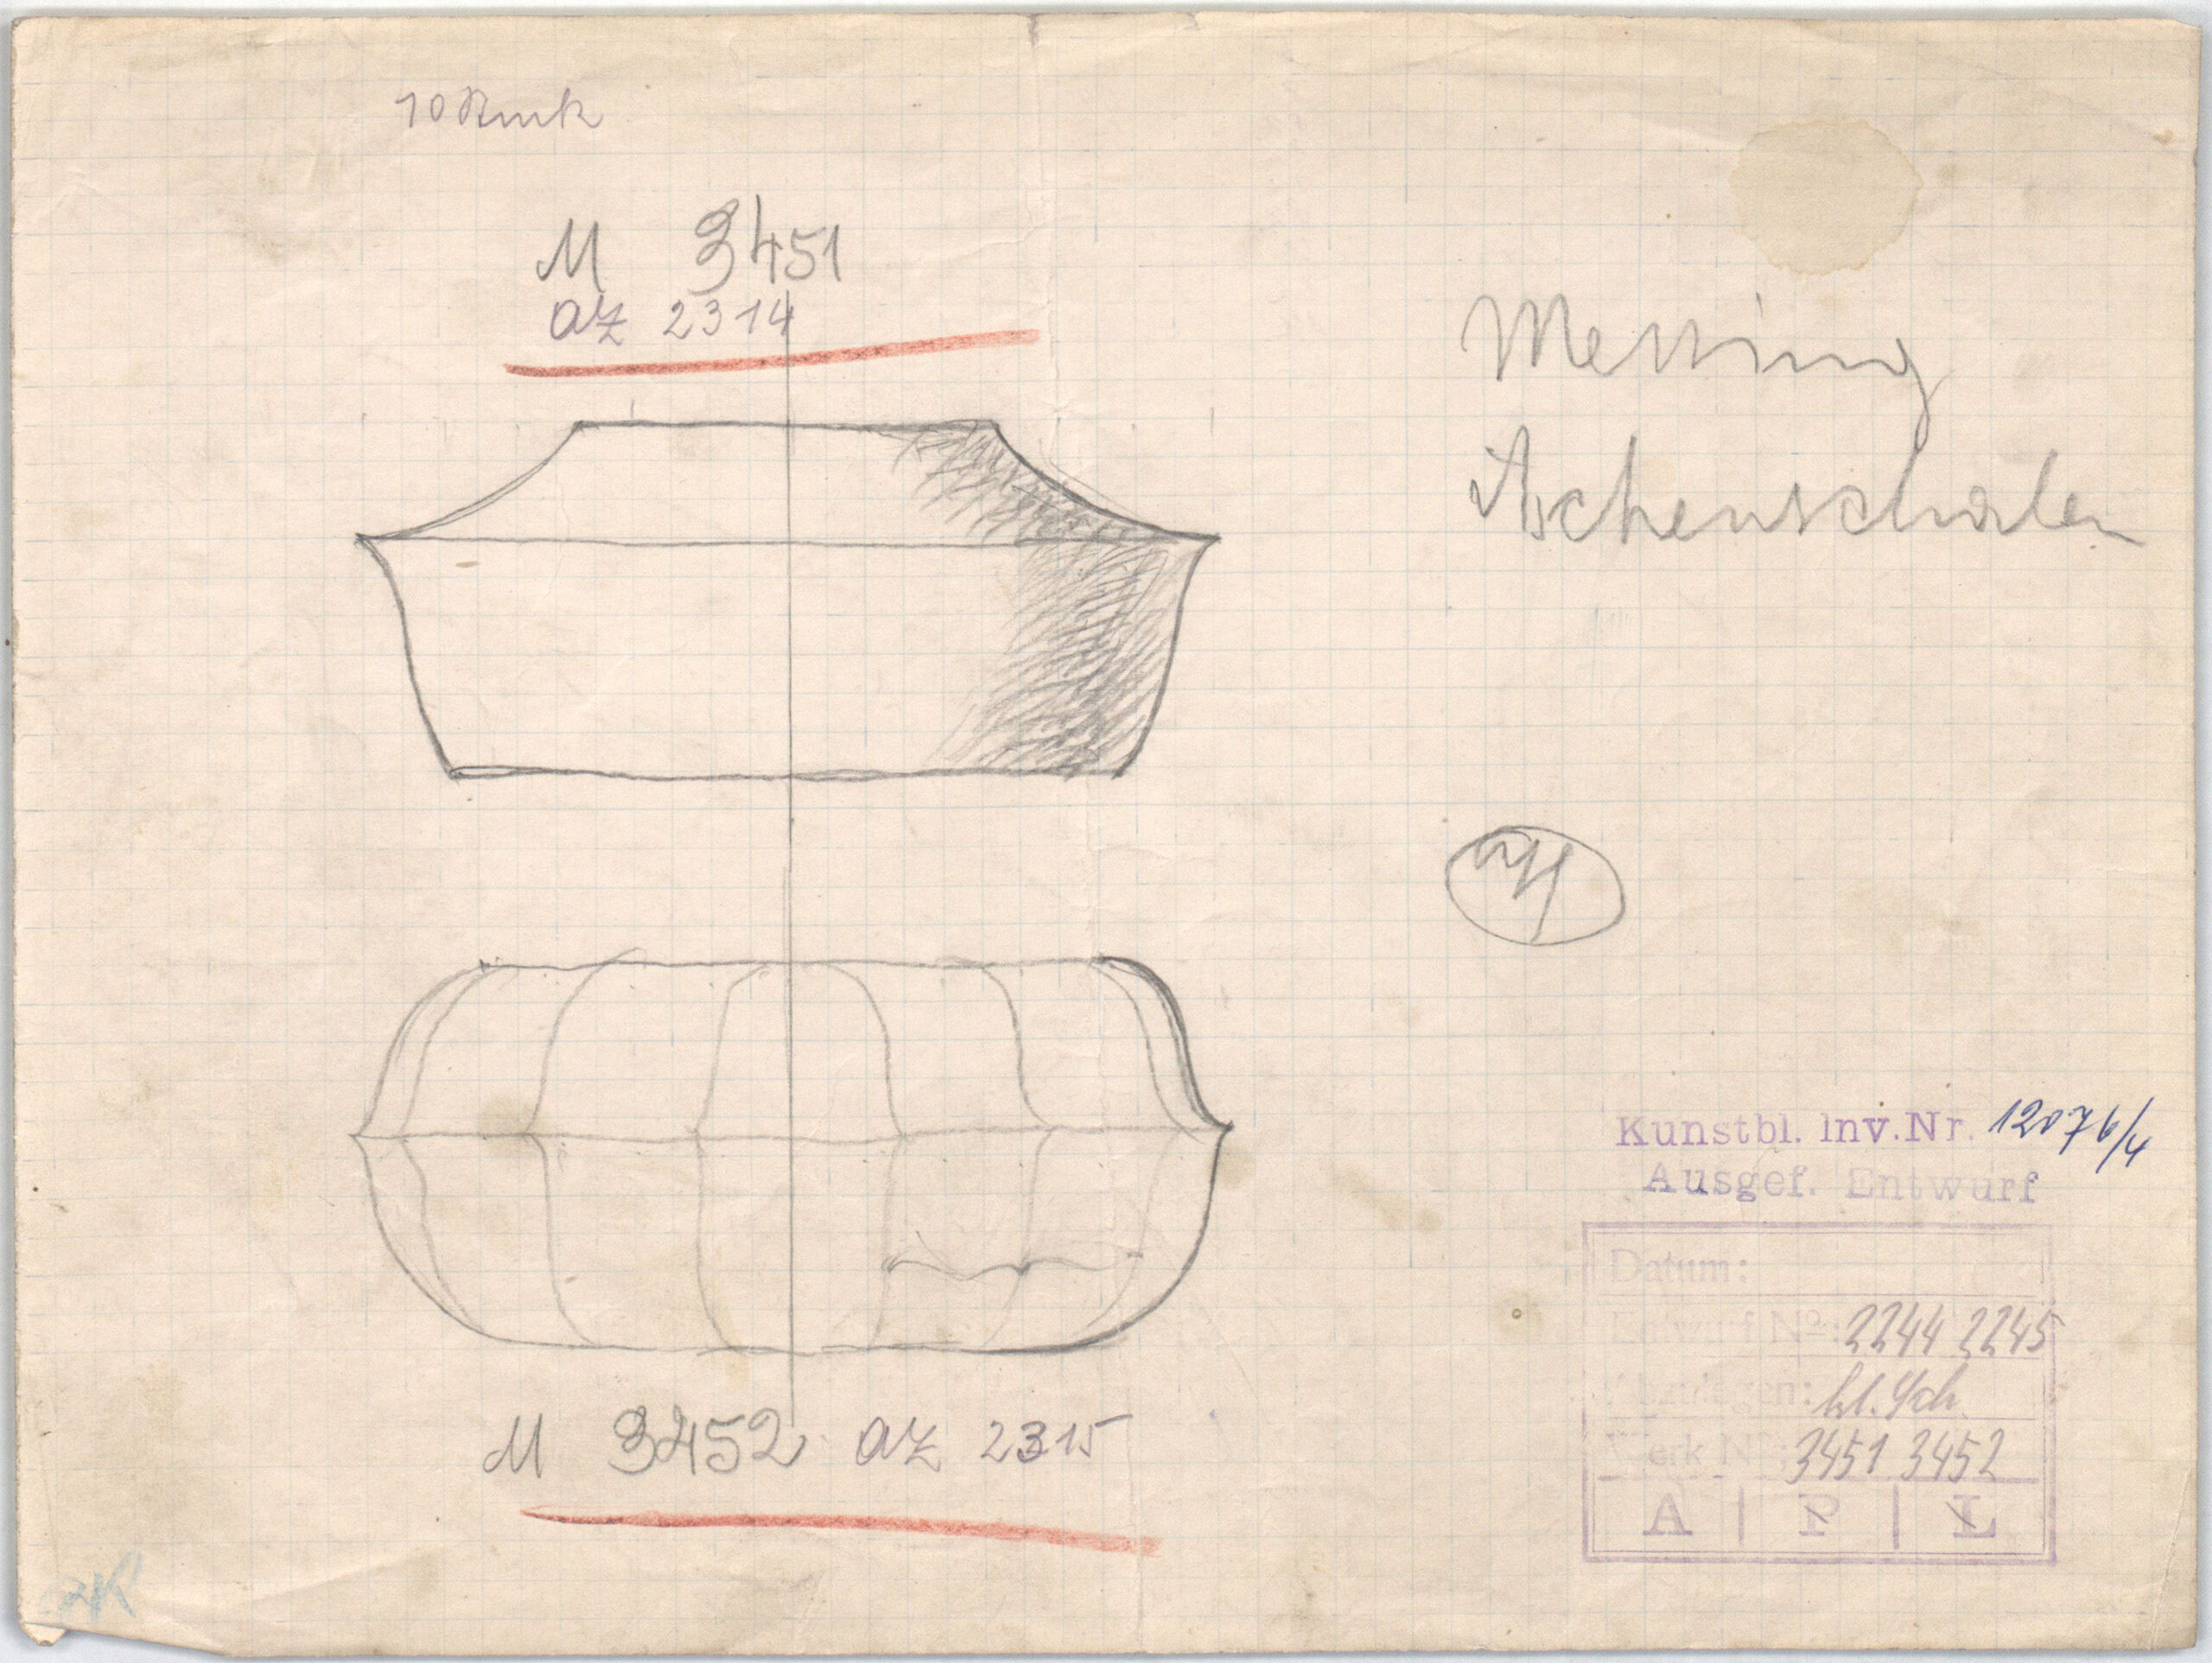 10 Stück
M 3451
az 2314
Messing
Aschenschalen
Kunstbl. Inv. Nr. 12076/4
Ausgef. Entwurf
Datum:
Entwurf No: 2244 2245
kl. Sch.
Werk No: 3451 3452
A | P | L
M 3452 az 2315